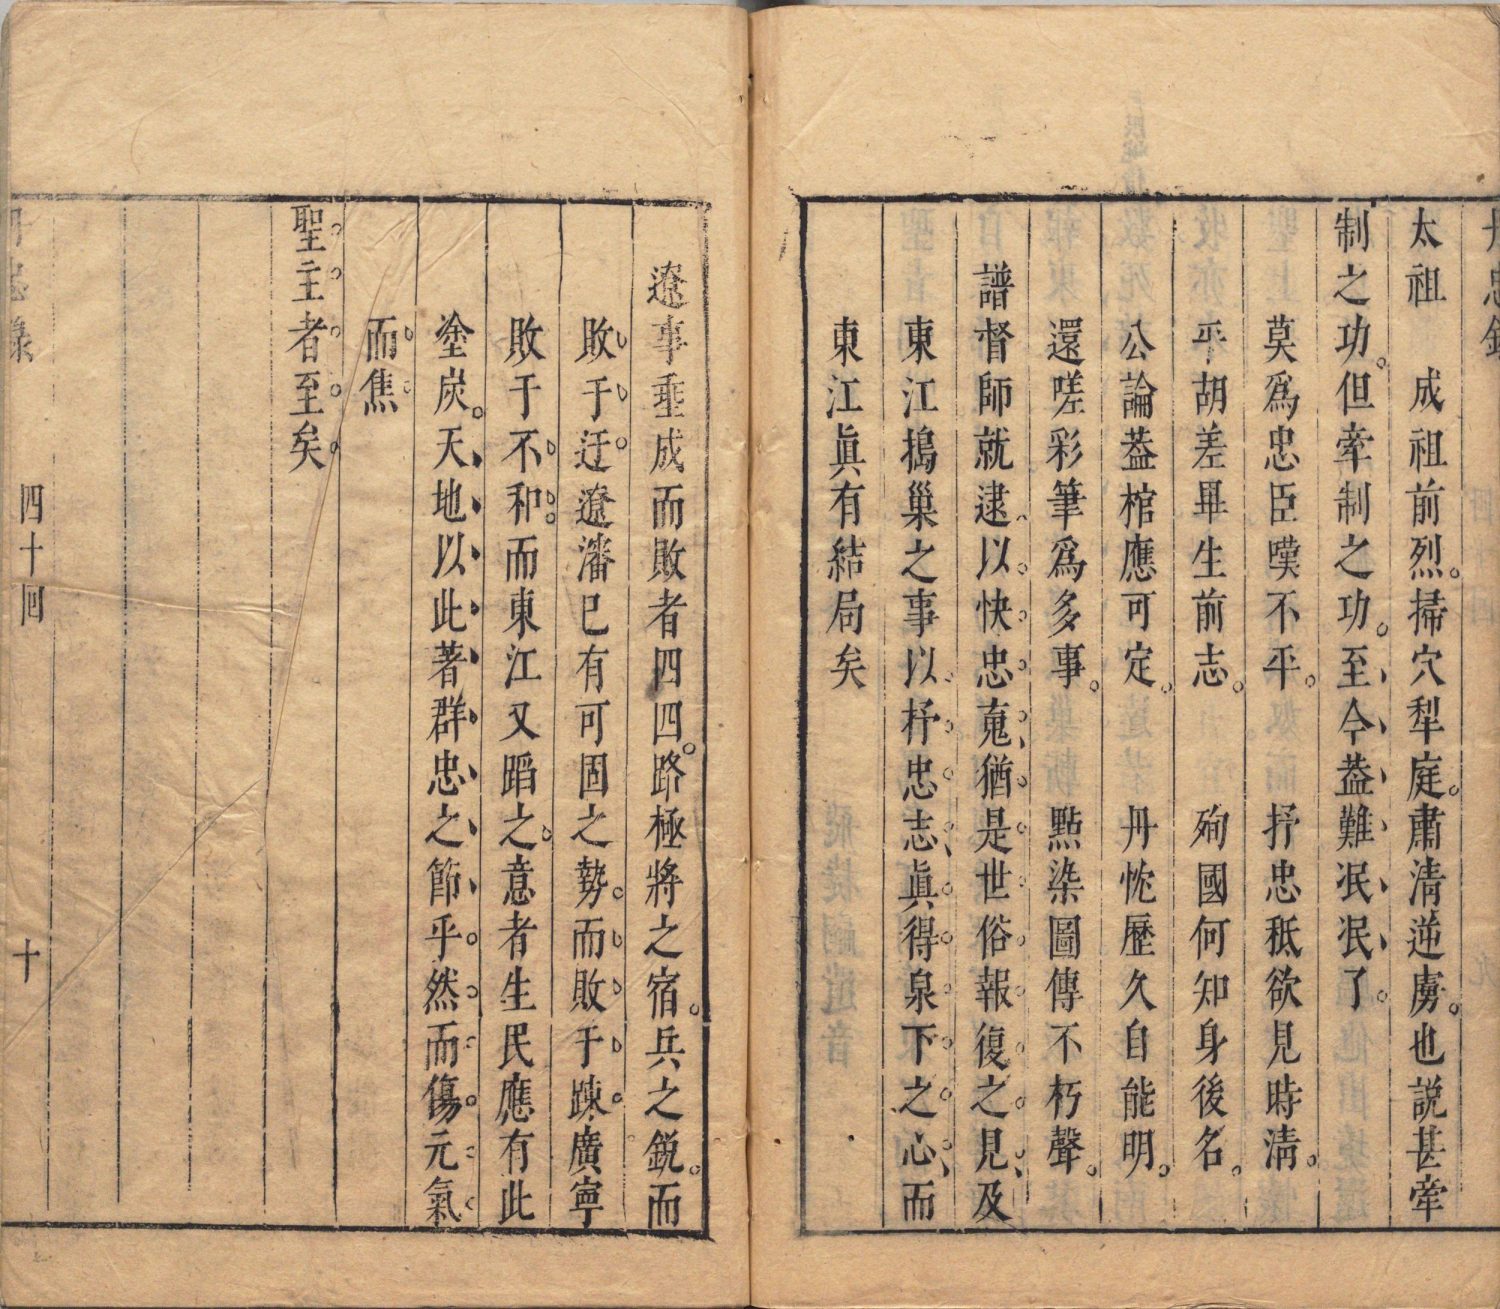 丹忠錄
太祖　成祖前烈掃穴犁庭肅清逆虜也説甚牽
制之功但牽制之功至今葢難冺冺了
莫爲忠臣嘆不平　抒忠秪欲見時清
平胡差畢生前志　殉國何知身後名
公論葢棺應可定　丹忱歷久自能明
還嗟彩筆爲多事　點染圖傳不朽聲
譜督師就逮以快忠䰟猶是世俗報復之見及
東江搗巢之事以抒忠志眞得泉下之心而
東江眞有結局矣
遼事垂成而敗者四四路極將之宿兵之鋭而
敗于迂遼瀋已有可固之勢而敗于踈廣寧
敗于不和而東江又蹈之意者生民應有此
塗炭天地以此著群忠之節乎然而傷元氣
而焦
聖主者至矣
四十回
十